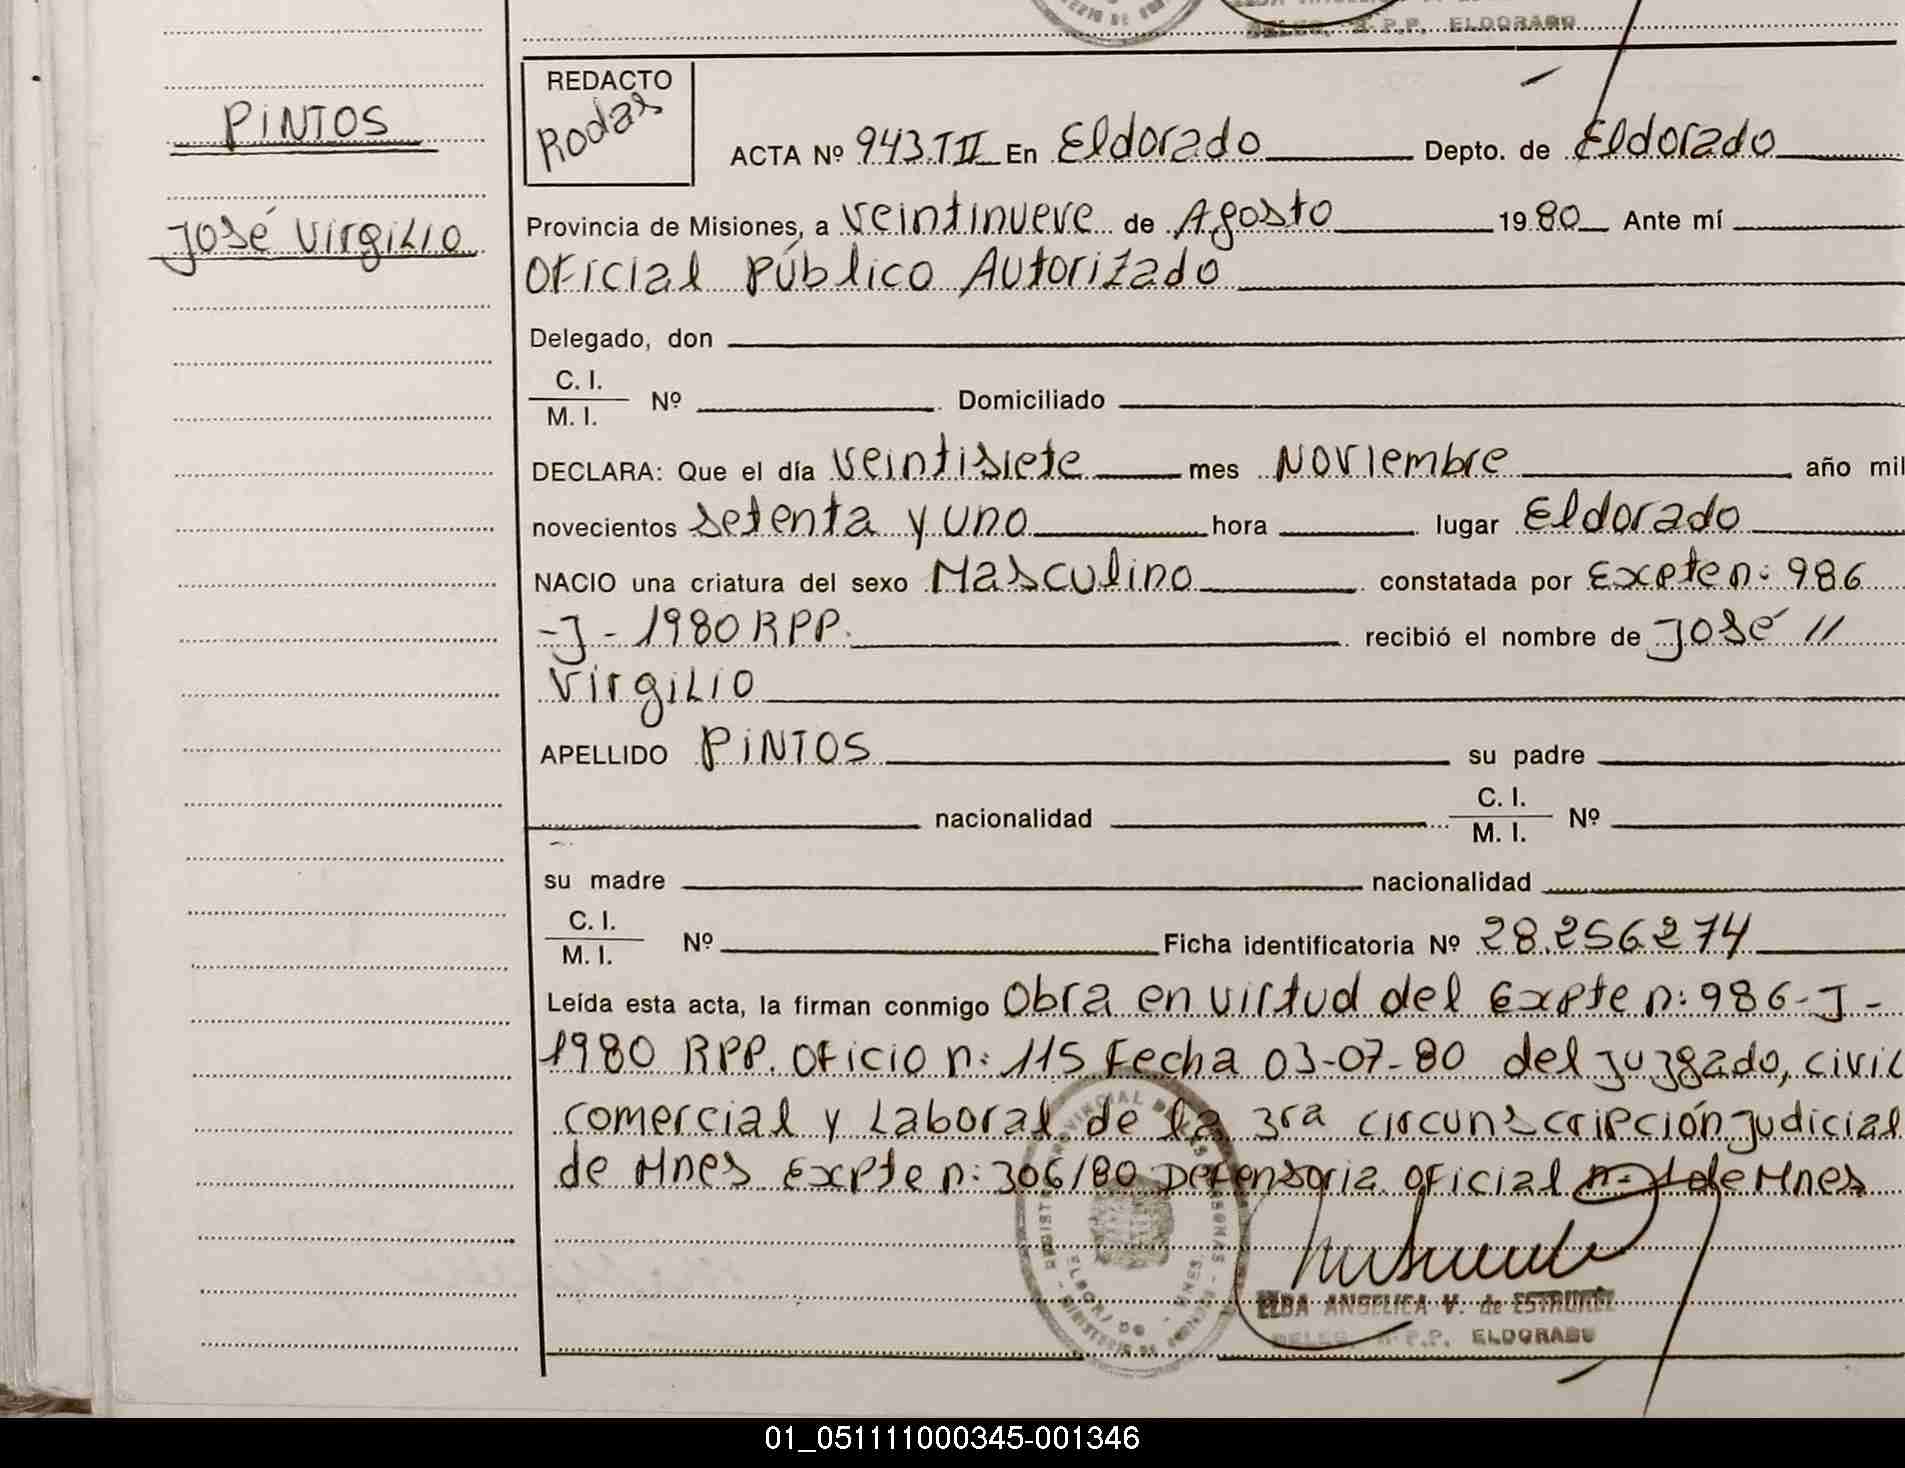 DELEG. R.P.P. ELDORADO
PINTOS
José Virgilio
REDACTO
Rodas
ACTA Nº 943.TII En Eldorado Depto. de Eldorado
Provincia de Misiones, a veintinueve de Agosto 1980 Ante mí
Oficial Público Autorizado
Delegado, don
C. I.
M. I.
Nº Domiciliado
DECLARA: Que el día veintisiete mes Noviembre año mil
novecientos setenta y uno hora lugar Eldorado
NACIO una criatura del sexo Masculino constatada por Expte n: 986
-J- 1980 RPP. recibió el nombre de José //
Virgilio
APELLIDO PINTOS su padre
nacionalidad C. I.
M. I. Nº
su madre nacionalidad
C. I.
M. I.
Nº Ficha identificatoria Nº 28.256274
Leída esta acta, la firman conmigo Obra en virtud del Expte n: 986-J-
1980 RPP. Oficio n: 115 Fecha 03-07-80 del juzgado, civil
comercial y Laboral de la 3ra circunscripción judicial
de Mnes Expte n: 306/80 Defensoria oficial n- 1 de Mnes
ELDA ANGELICA V. de
DELEG. R.P.P. ELDORADO
01_051111000345-001346